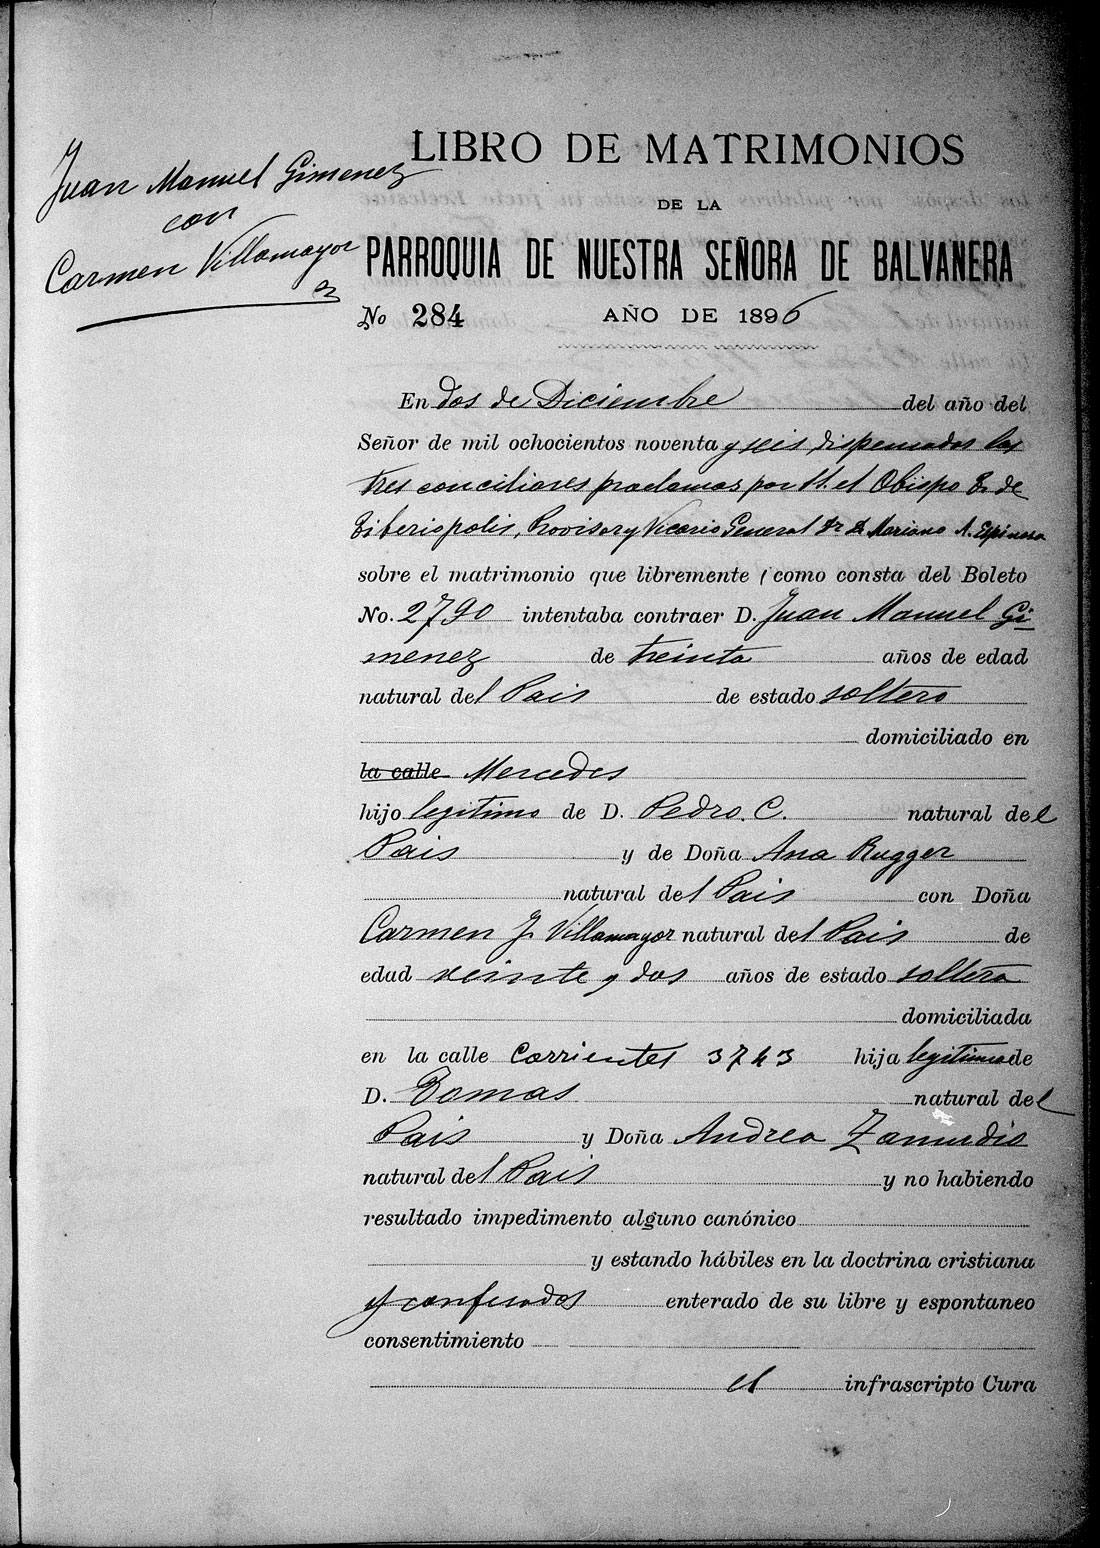 Juan Manuel Gimenez
con
Carmen Villamayor
LIBRO DE MATRIMONIOS
DE LA
PARROQUIA DE NUESTRA SEÑORA DE BALVANERA
No 284 AÑO DE 1896
En dos de Diciembre del año del
Señor de mil ochocientos noventa y seis dispensadas las
tres conciliares proclamas por el Obispo de
Tiberiopolis, Provisor y Vicario General Dr D. Mariano A. Espinosa
sobre el matrimonio que libremente (como consta del Boleto
No. 2790 intentaba contraer D. Juan Manuel Gi
menez de treinta años de edad
natural del Pais de estado soltero
domiciliado en
la calle Mercedes
hijo legitimo de D. Pedro. C. natural del
Pais y de Doña Ana Rugger
natural del Pais con Doña
Carmen J. Villamayor natural del Pais de
edad veinte y dos años de estado soltera
domiciliada
en la calle Corrientes 3743 hija legitima de
D. Tomas natural del
Pais y Doña Andrea Zamudio
natural del Pais y no habiendo
resultado impedimento alguno canónico
y estando hábiles en la doctrina cristiana
y confesados enterado de su libre y espontaneo
consentimiento
el infrascripto Cura